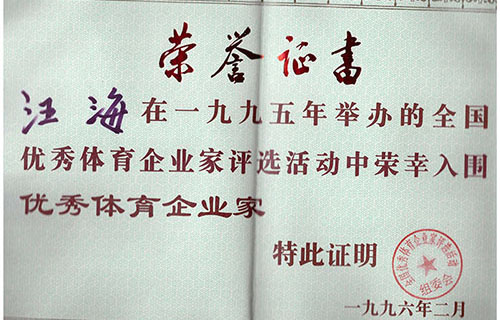 荣誉证书
汪海在一九九五年举办的全国
优秀体育企业家评选活动中荣幸入围
优秀体育企业家
特此证明
全国优秀体育企业家评选活动
组委会
一九九六年二月